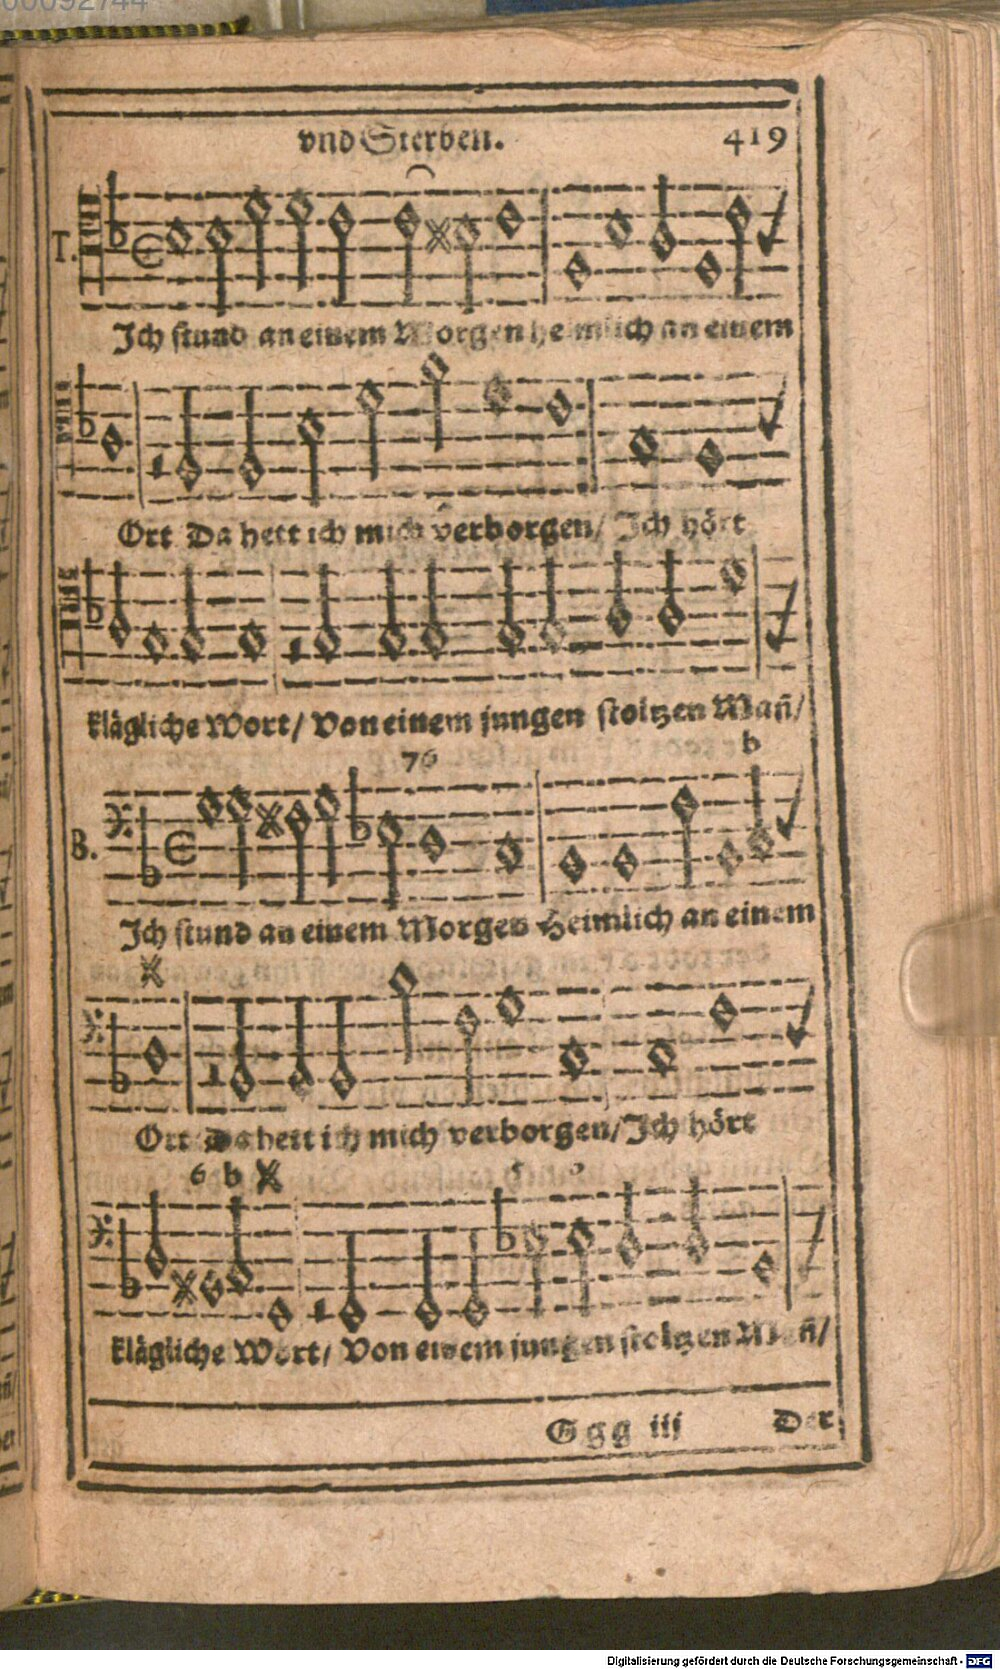 00092744
vnd Sterben. 419
T.
Ich stund an einem Morgen heimlich an einem
Ort Da hett ich mich verborgen/ Ich hört
klägliche Wort/ Von einem jungen stoltzen Mañ/
76 b
B.
Ich stund an einem Morgen Heimlich an einem
Ort Da hett ich mich verborgen/ Ich hört
6 b
klägliche Wort/ Von einem jungen stoltzen Mañ/
Ggg iij Der
Digitalisierung gefördert durch die Deutsche Forschungsgemeinschaft - DFG